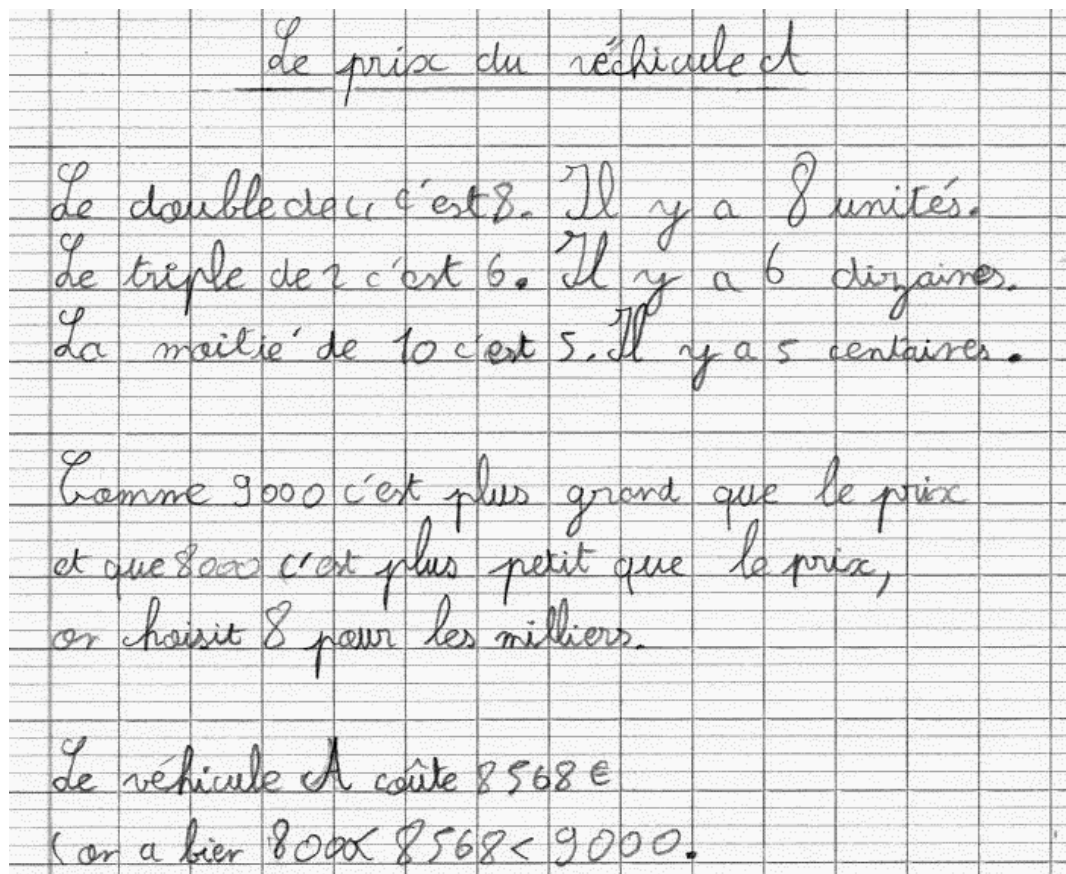 Le prix du véhicule A
Le double de 4 c'est 8. Il y a 8 unités.
Le triple de 2 c'est 6. Il y a 6 dizaines.
La moitié de 10 c'est 5. Il y a 5 centaines.
Comme 9000 c'est plus grand que le prix
et que 8000 c'est plus petit que le prix,
on hoisit 8 pour les milliers.
Le véhicule A coûte 8568 €
(on a bien 8000< 8568 < 9000.